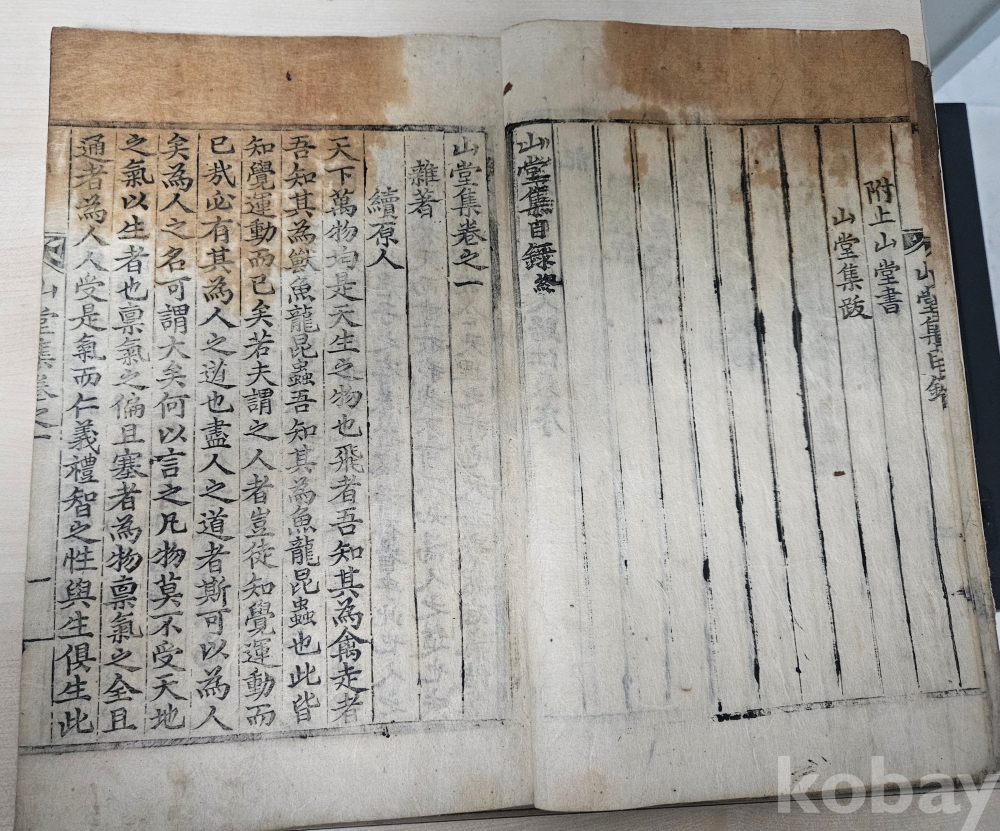 附上山堂書
山堂集跋
山堂集目錄終
山堂集目錄
山堂集卷之一
雜著
續原人
天下萬物均是天生之物也飛者吾知其為禽走者
吾知其為獸魚龍昆蟲吾知其為魚龍昆蟲也此皆
知覺運動而已矣若夫謂之人者豈徒知覺運動而
已哉必有其為人之道也盡人之道者斯可以為人
矣為人之名可謂大矣何以言之凡物莫不受天地
之氣以生者也禀氣之偏且塞者為物禀氣之全且
通者為人人受是氣而仁義禮智之性與生俱生此
山堂集卷之一
一
kobay